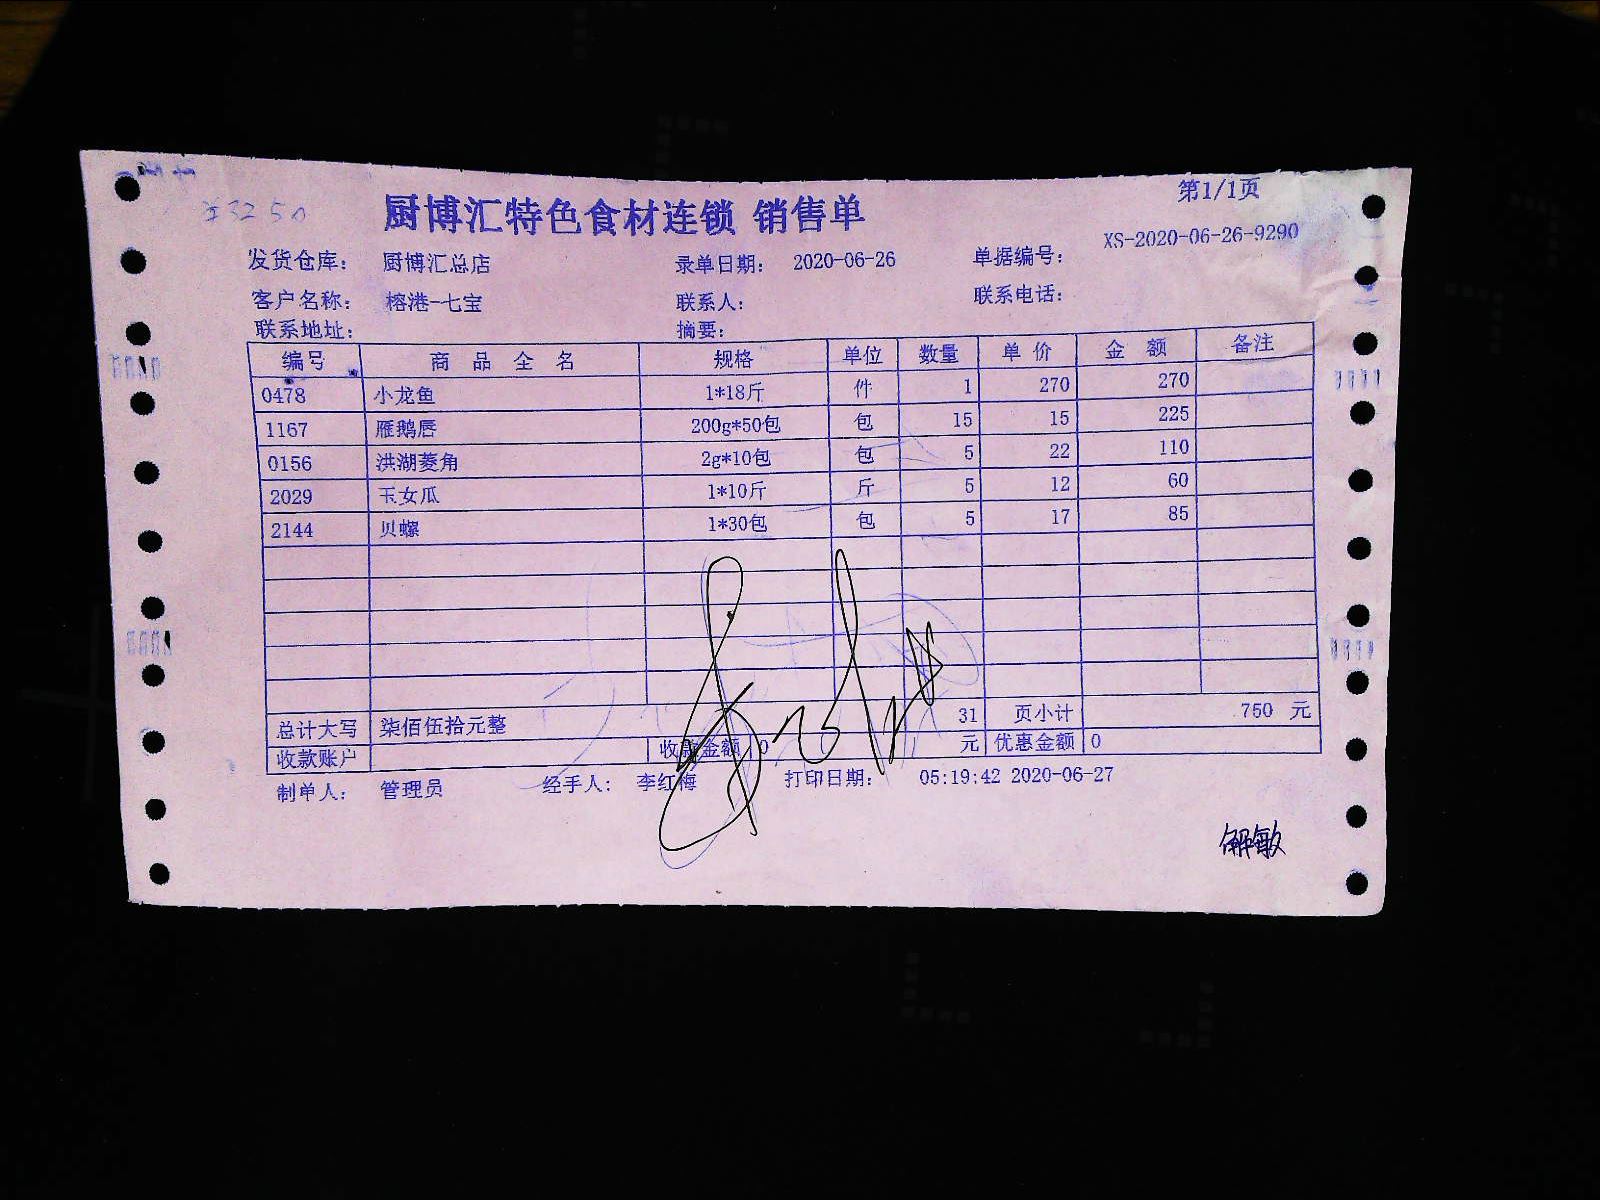 第1/1页
厨博汇特色食材连锁 销售单
发货仓库： 厨博汇总店 录单日期： 2020-06-26 单据编号： XS-2020-06-26-9290
客户名称： 榕港-七宝 联系人： 联系电话：
联系地址： 摘要：
编号 商品全名 规格 单位 数量 单价 金额 备注
0478 小龙鱼 1*18斤 件 1 270 270
1167 雁鹅唇 200g*50包 包 15 15 225
0156 洪湖菱角 2g*10包 包 5 22 110
2029 玉女瓜 1*10斤 斤 5 12 60
2144 贝螺 1*30包 包 5 17 85
总计大写 柒佰伍拾元整 31 页小计 750 元
收款账户 收款金额 0 元 优惠金额 0
制单人： 管理员 经手人： 李红梅 打印日期： 05:19:42 2020-06-27
解敏